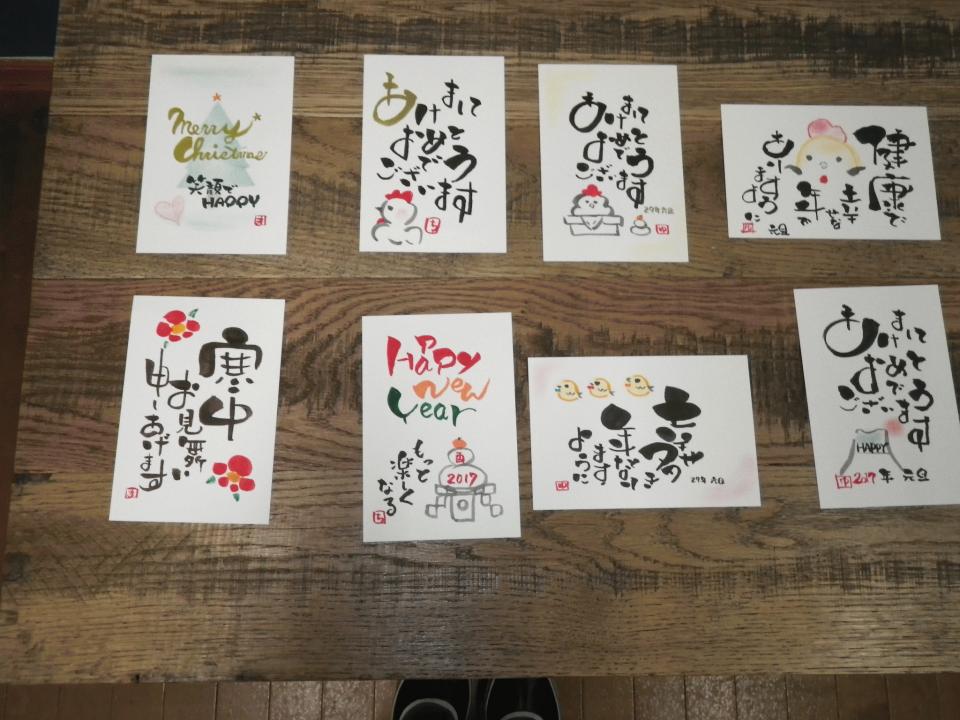 Merry
Christmas
笑顔で
HAPPY
あけ
まして
おめでとう
ございます
あけ
まして
おめでとう
ございます
29年元旦
健康で
幸若
年で
ありますように
元旦
寒中
お見舞い
申しあげます
Happy
new
year
もっと
楽しく
なる
酉
2017
年になり
ます
ように
29年元旦
あけ
まして
おめでとう
ございます
HAPPY
2017年元旦